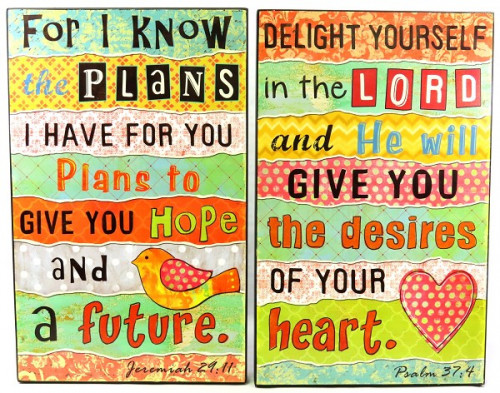 For I Know
the PLANS
I HAVE FOR YOU
Plans to
GIVE YOU HOPE
AND
a future.
Jeremiah 29:11
DELIGHT YOURSELF
in the LORD
and He will
GIVE YOU
the desires
OF YOUR
heart.
Psalm 37:4